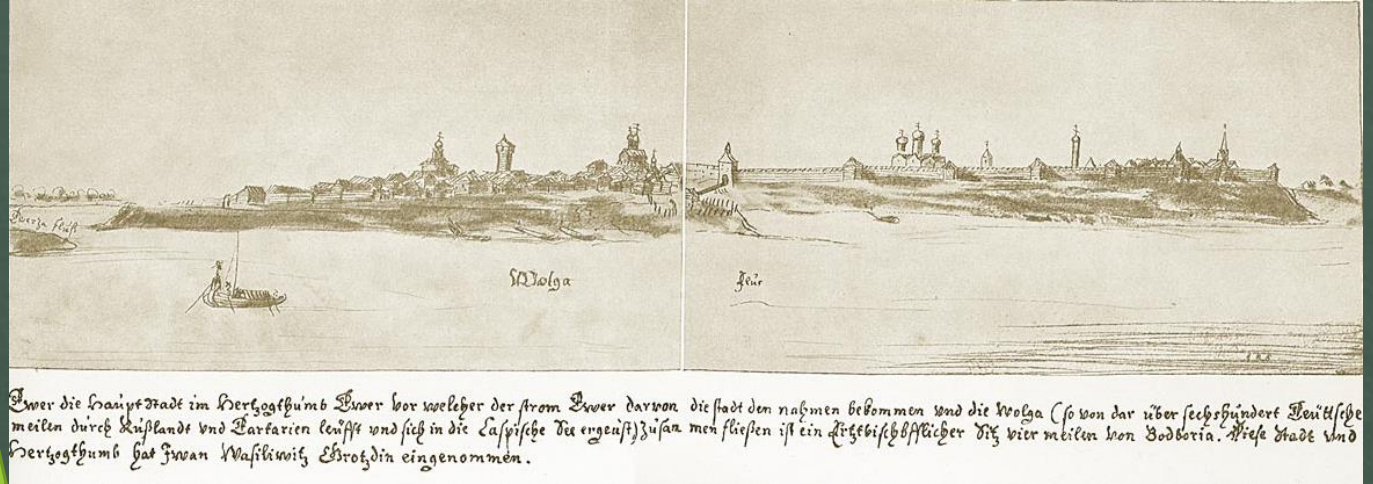 Twerza fluß
Wolga
fluv
Twer die Haupt Stadt im Hertzogthumb Twer vor welcher der strom Twer darvon die stadt den nahmen bekommen vnd die Wolga (so von dar über sechshundert Teutsche
meilen durch Rußlandt vnd Tartarien leüfft vnd sich in die Caspische See ergeust) zusammen fließen ist ein Ertzbischöfflicher Sitz vier meilen von Godboria. Diese Stadt vnd
Hertzogthumb hat Iwan Wasiliwitz Grotzdin eingenommen.